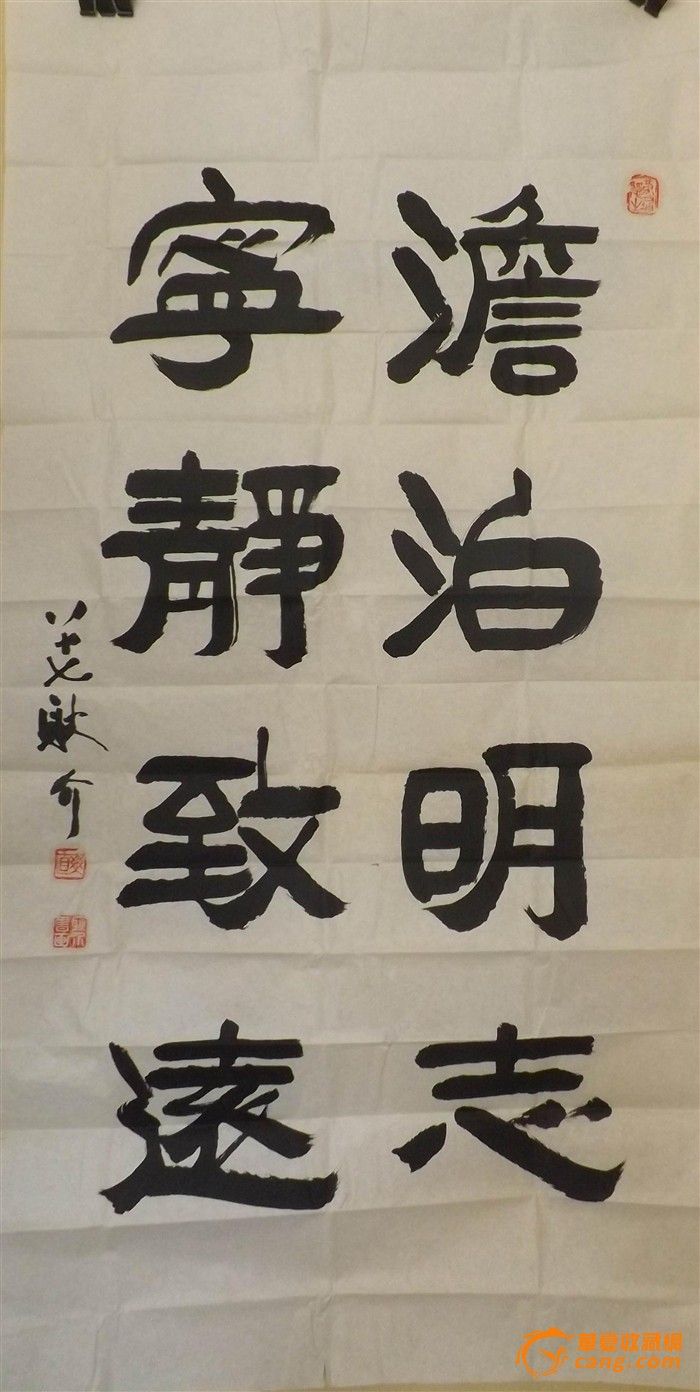 澹泊明志
寧靜致遠
八十七耿介
華夏收藏網
cang.com